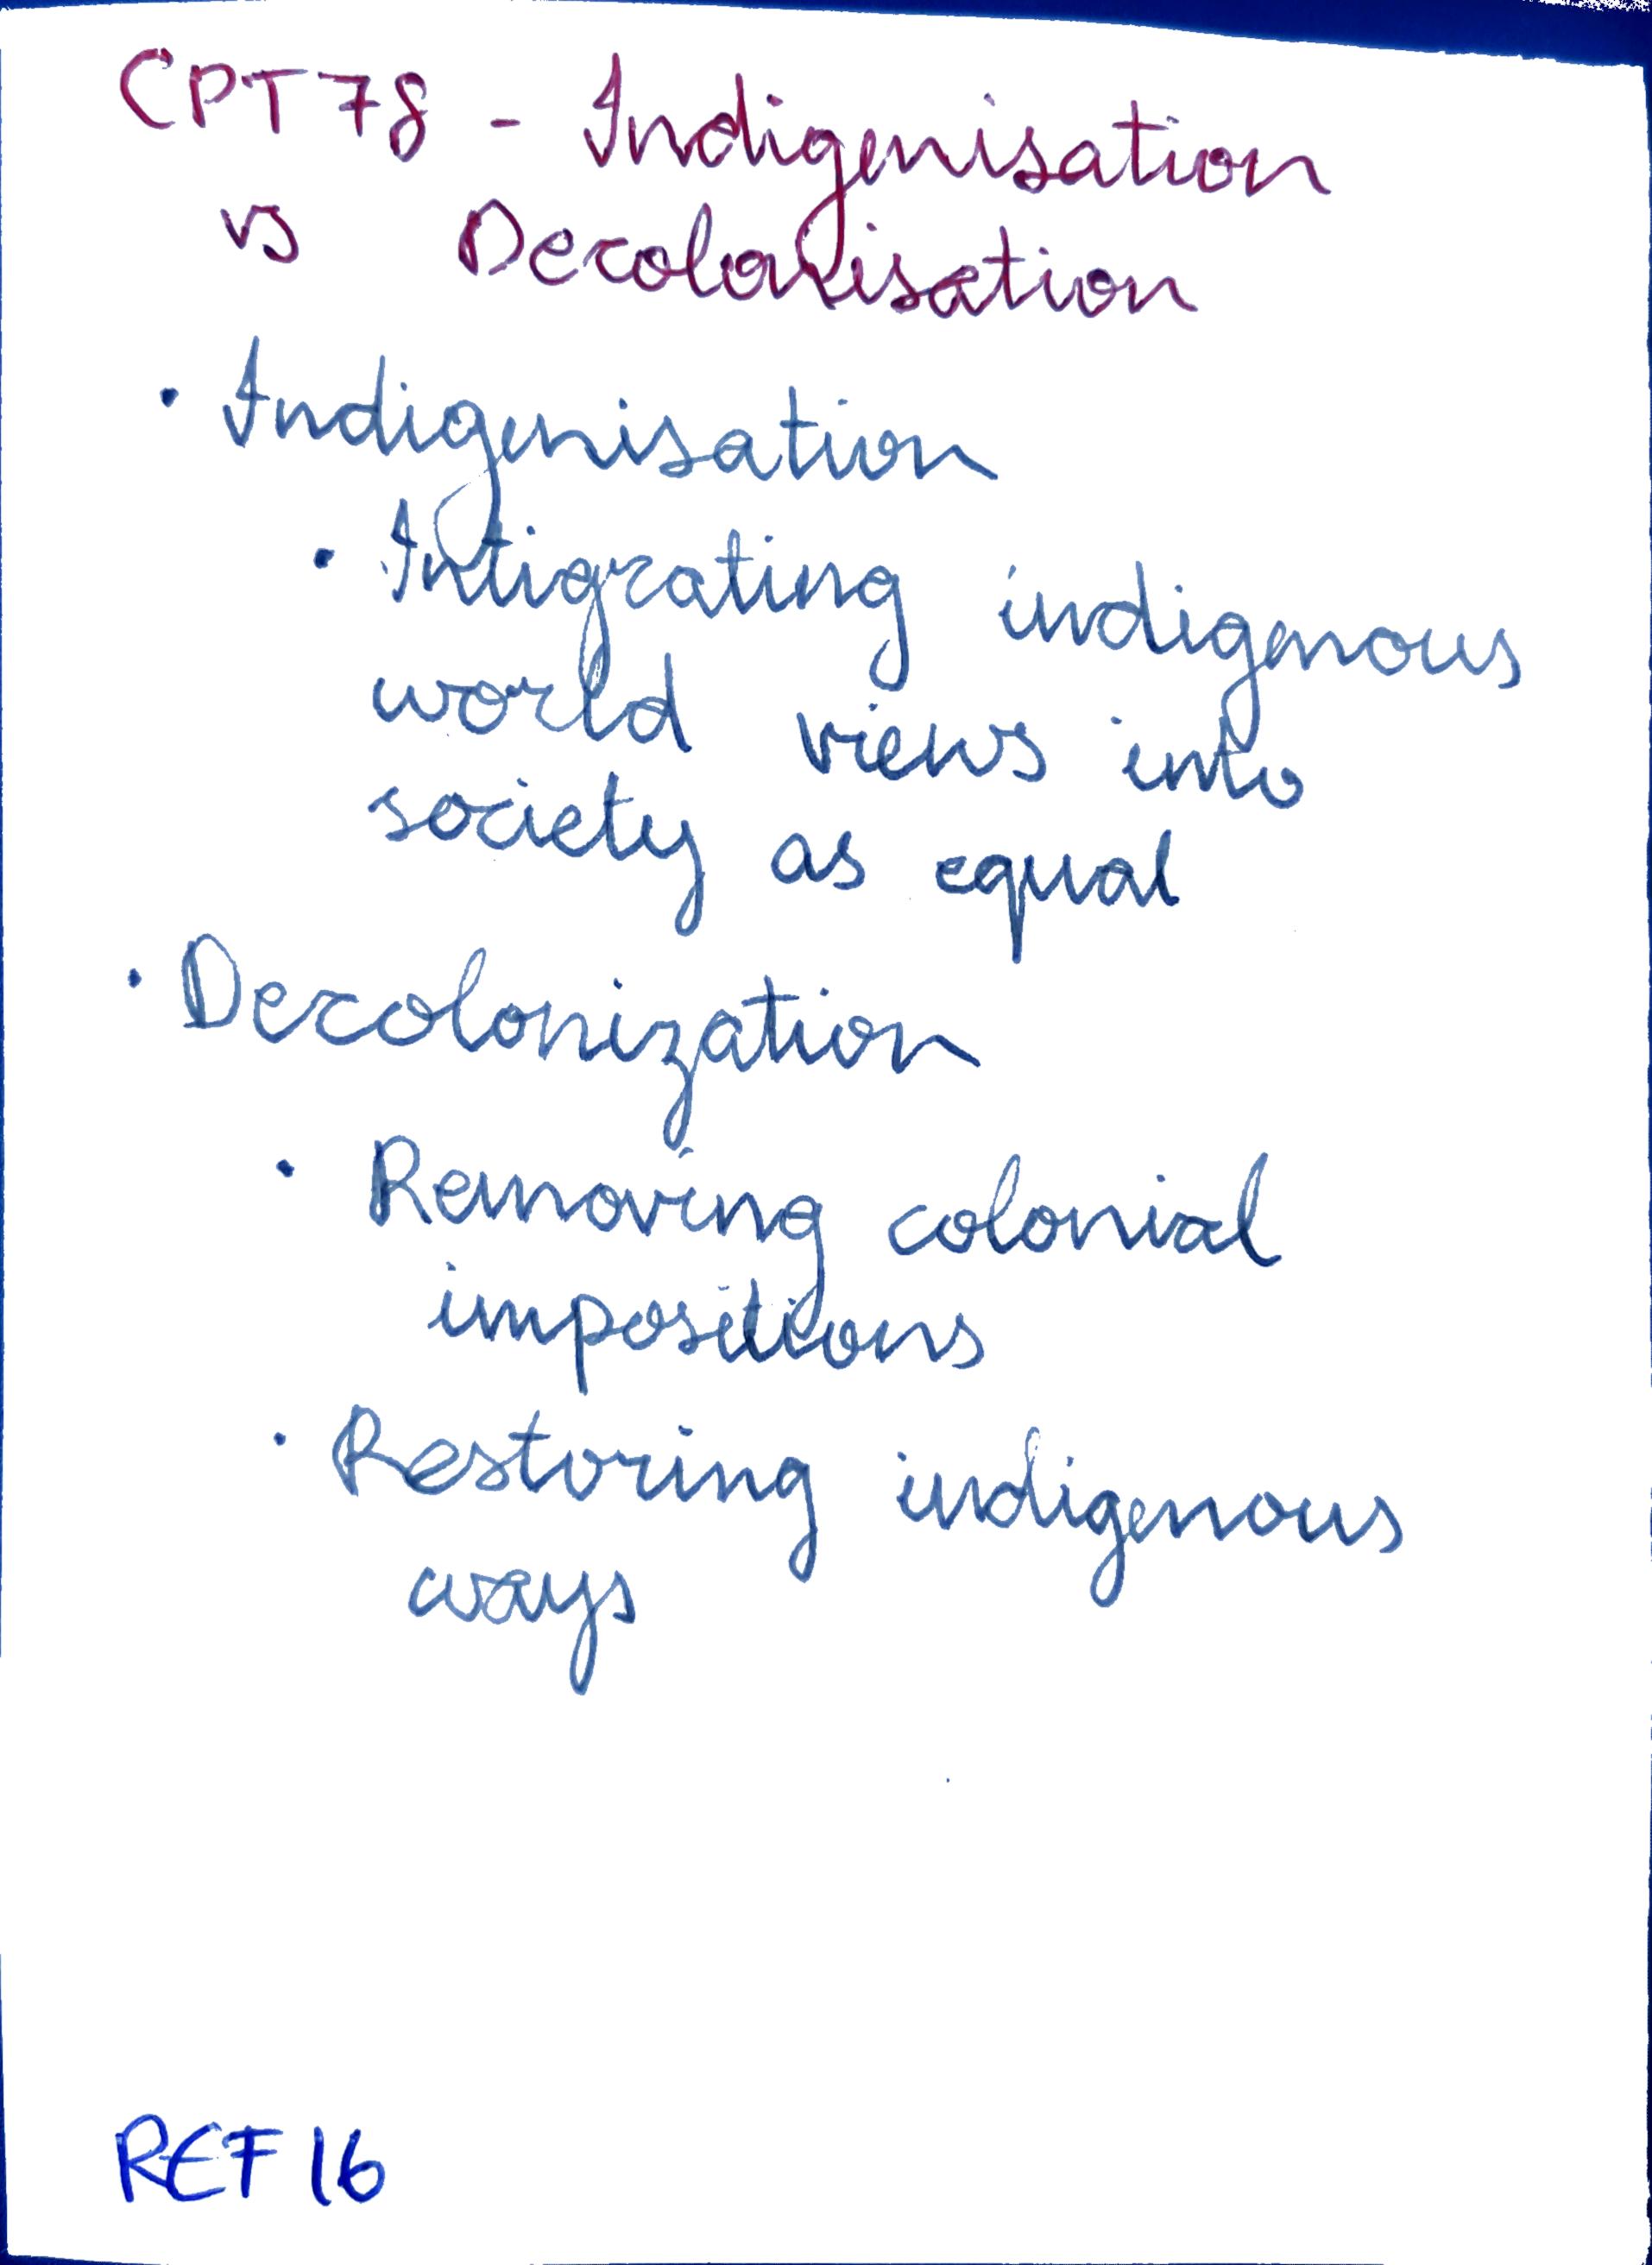 CPT78 - Indigenisation
vs Decolonisation
• Indigenisation
• Intigrating indigenous
world views into
society as equal
• Decolonization
• Removing colonial
impositions
• Restoring indigenous
ways
REF16